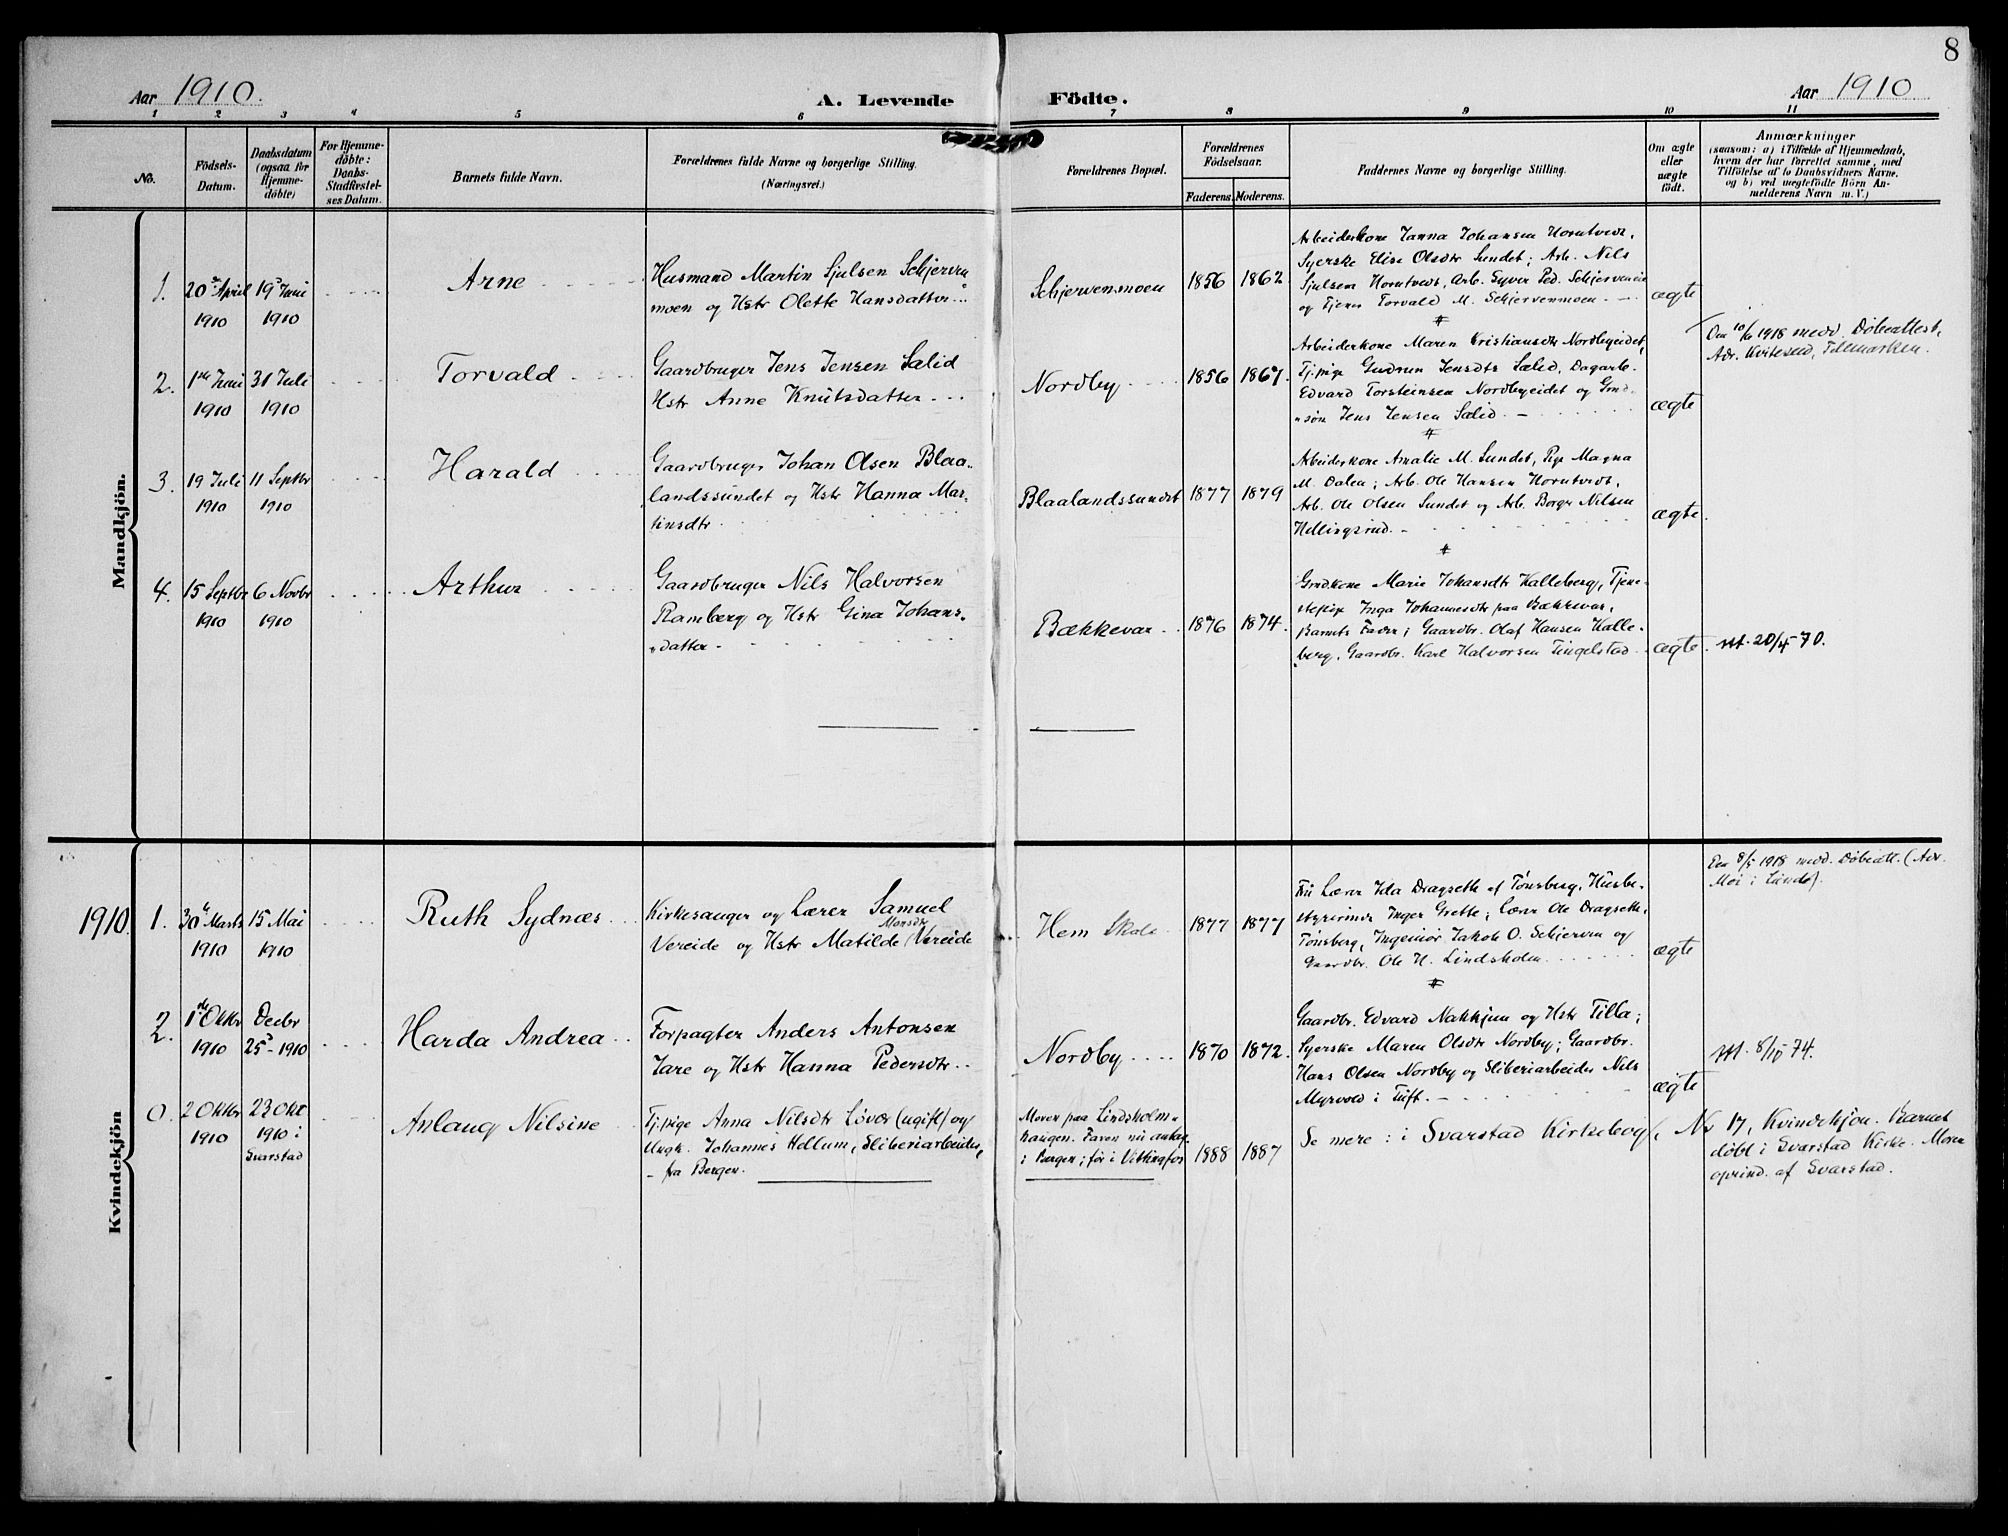 8
Aar 1910.
A. Levende
Födte.
Aar 1910
1 2 3 4 5 6 7 8 9 10 11
No.
Födsels-
Datum.
Daabsdatum
(ogsaa for
Hjemme-
döbte)
For Hjemme-
döbte:
Daabs-
Stadfæstel-
ses Datum.
Barnets fulde Navn.
Forældrenes fulde Navne og borgerlige Stilling.
(Næringsvei.)
Forældrenes Bopæl.
Forældrenes
Födselsaar.
Faderens. Moderens.
Faddernes Navne og borgerlige Stilling.
Om ægte
eller
uægte
födt.
Anmærkninger
(saasom: a) i Tilfælde af Hjemmedaab,
hvem der har forrettet samme, med
Tilföielse af to Daabsvidners Navne.
og b) ved uægtefödte Börn An-
melderens Navn m. V.)
Mandkjön.
1.
20de April
1910
19de Juni
1910
Arne
Husmand Martin Sjulsen Schjerven
moen og Hstr Olette Hansdatter
Schjervenmoen
1856
1862
Arbeiderkone Janna Johansen Horntvedt,
Syerske Elise Olsdtr Sundet; Arb. Nils
Sjulsen Horntvedt, Arb. Syver Ped. Schjerveneie
og Tjener Torvald M. Schjervenmoen
ægte
2.
1ste Juni
1910
31 Juli
1910
Torvald
Gaardbruger Jens Jensen Sælid
Hstr Anne Knutsdatter
Nordby
1856
1867.
Arbeiderkone Maren Kristiansdtr Nordbyeidet,
Tj.pige Gudrun Jensdtr Sælid, Dagarb.
Edvard Torsteinsen Nordbyeidet og Grd
"søn Jens Jensen Sælid.
ægte
Den 10/6 1918 medd. Døbeattest,
Adr. Kviteseid, Telemarken.
3.
19 Juli
1910
11 Septbr
1910
Harald
Gaardbruger Johan Olsen Blaa-
landssundet og Hstr Hanna Mar-
tinsdtr
Blaalandssundet
1877
1879
Arbeiderkone Amalie M. Sundet, Pige Magna
M. Dalen; Arb. Ole Hansen Horntvedt,
Arb. Ole Olsen Sundet og Arb. Borger Nilsen
Hellingsrud.
ægte
4.
15 Septbr
1910
6 Novbr
1910
Arthur
Gaardbruger Nils Halvorsen
Ramberg og Hstr Gina Johans-
"datter
Bækkevar
1876
1874.
Grdkone Marie Johansdtr Kalleberg, Tjene-
stepige Inga Johannesdtr paa Bækkevar,
Barnets Fader; Gaardbr. Olaf Hansen Kalle-
berg, Gaardbr. Karl Halvorsen Tingelstad
ægte
20/4 70.
Kvindekjön
1910
1.
30te Marts
1910
15 Mai
1910
Ruth Sydnæs
Kirkesanger og Lærer Samuel
Monsdtr
Vereide og Hstr Matilde Vereide
Hem Skole
1877
1877
Fru Lærer Ida Dragseth af Tønsberg, Husbe-
styrerinde Inger Grette; Lærer Ole Dragseth,
Tønsberg, Ingeniør Jakob O. Schjerven og
Gaardbr. Ole H. Lindsholm
ægte
Den 8/5 1918 medd. Døbeatt. (Adr.
Moi i Lund).
2.
1ste Oktbr
1910
Decbr
25de 1910
Harda Andrea
Forpagter Anders Antonsen
Jare og Hstr Hanna Pedersdtr
Nordby
1870
1872.
Gaardbr. Edvard Nakkjem og Hstr Tilla;
Syerske Maren Olsdtr Nordby; Gaardbr.
Hans Olsen Nordby og Sliberiarbeider Nils
Myrvold i Tuft.
ægte
8/10 74.
0.
2 Oktbr
1910
23 Okt
1910 i
Svarstad
Anlaug Nilsine
Tj.pige Anna Nilsdtr Løvås (ugift) og
Ungk. Johannes Hellum, Sliberiarbeider,
fra Bergen.
Moren paa Lindsholm-
haugen. Faren nu
i Bergen; før i Vittingfos
1888
1887
Se mere: i Svarstad Kirkebog, Nr 17, Kvindekjøn. Barnet
døbt i Svarstad Kirke. Moren
oprind. af Svarstad.